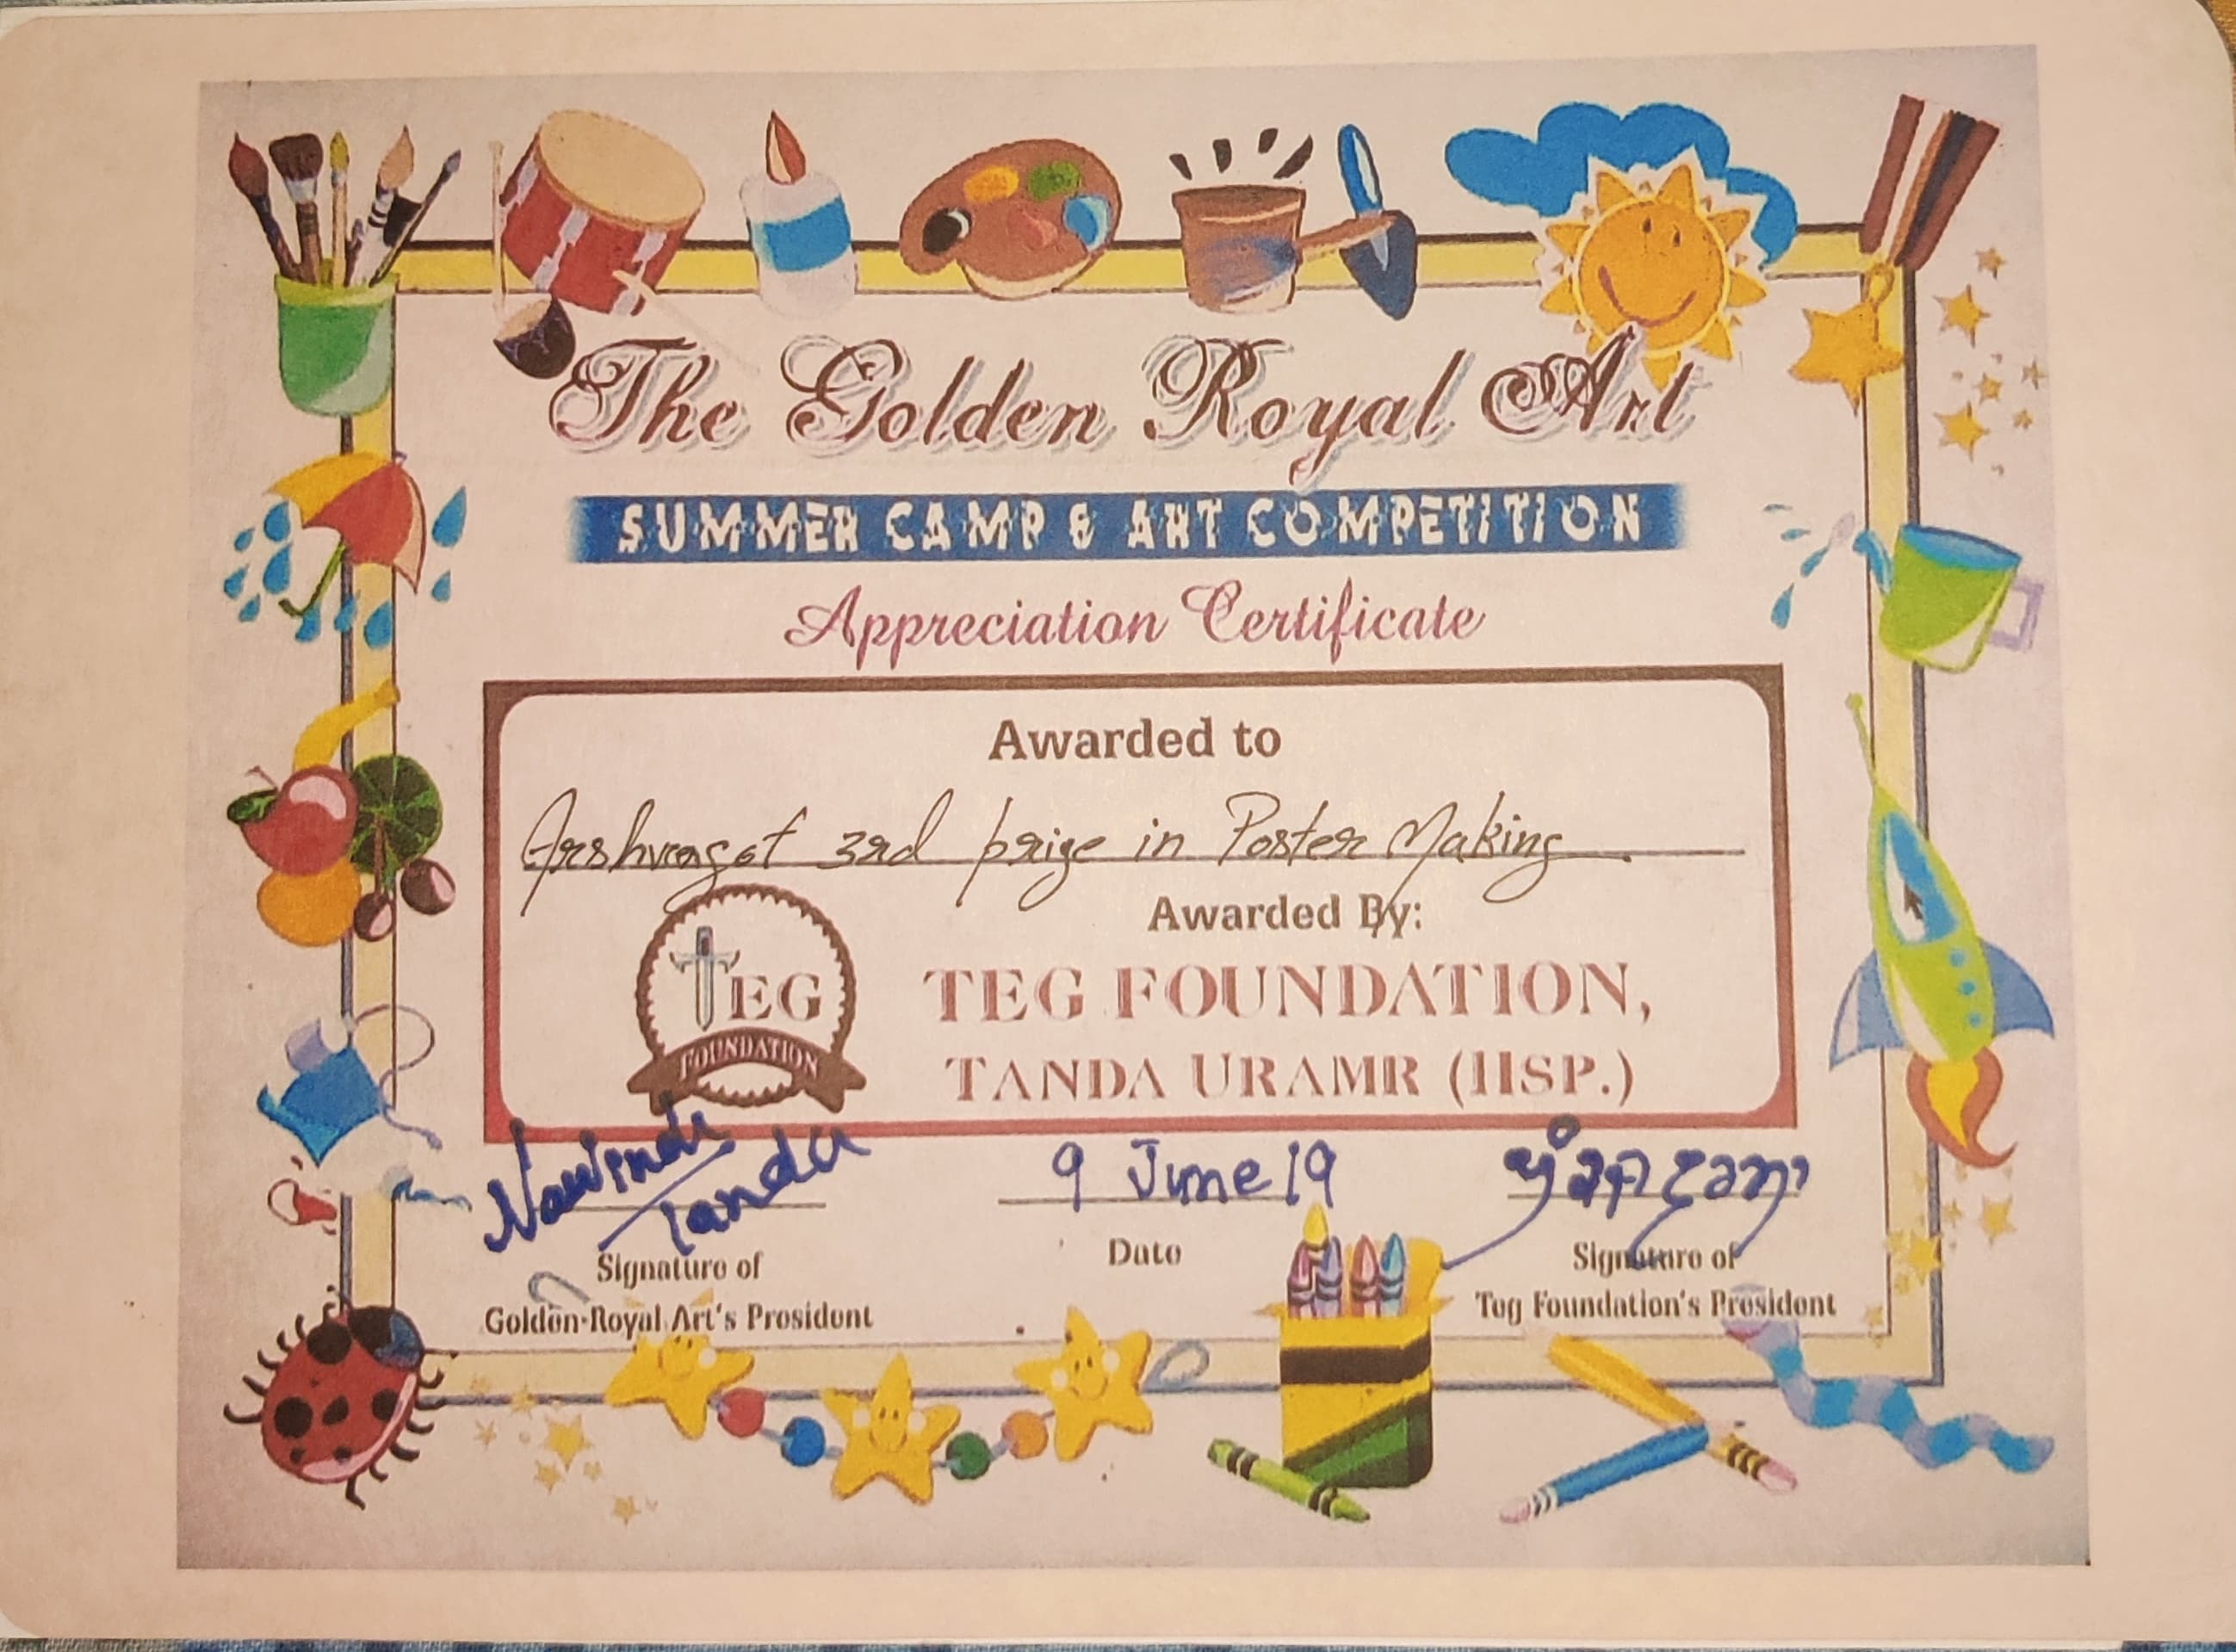 The Golden Royal Art
SUMMER CAMP & ART COMPETITION
Appreciation Certificate
Awarded to
3rd prize in Poster Making.
Awarded By:
TEG
FOUNDATION
TEG FOUNDATION,
TANDA URAMR (HSP.)
Tanda
9 June 19
Signature of
Golden Royal Art's President
Date
Signature of
Teg Foundation's President